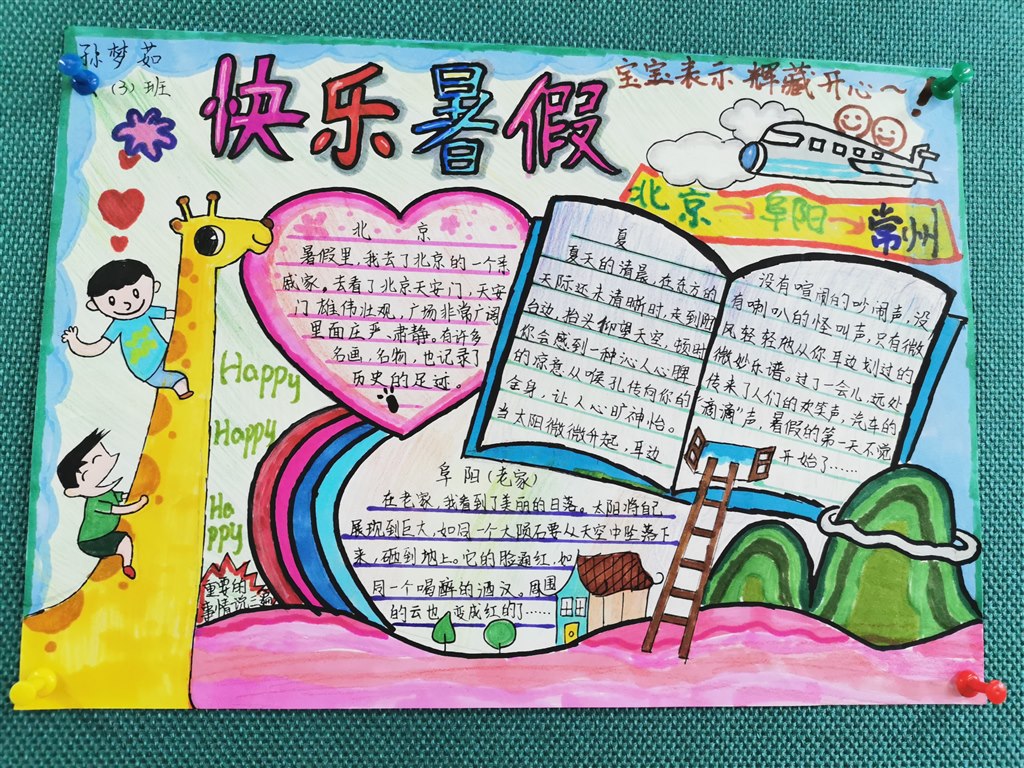 孙梦茹
(3)班
快乐暑假
宝宝表示 辉藏开心～!
北京→阜阳→常州
北 京
暑假里,我去了北京的一个亲
戚家。去看了北京天安门,天安
门雄伟壮观,广场非常广阔
里面庄严肃静。有许多
名画,名物,也记录了
历史的足迹。
夏
夏天的清晨,在东方的
天际还未清晰时,走到阳
台边,抬头仰望天空,顿时
你会感到一种沁人心脾
的凉意,从喉孔传向你的
全身,让人心旷神怡。
当太阳微微升起,耳边
没有喧闹的吵闹声,没
有喇叭的怪叫声,只有微
风轻轻地从你耳边划过的
微妙乐谱。过了一会儿,远处
传来了人们的欢笑声,汽车的
“滴滴”声,暑假的第一天不觉
开始了……
Happy
Happy
Ha
ppy
重要的
事情说三遍
阜阳(老家)
在老家,我看到了美丽的日落。太阳将自己
展现到巨大,如同一个大陨石要从天空中坠落下
来,砸到地上。它的脸通红,如
同一个喝醉的酒汉。周围
的云也变成红的了……